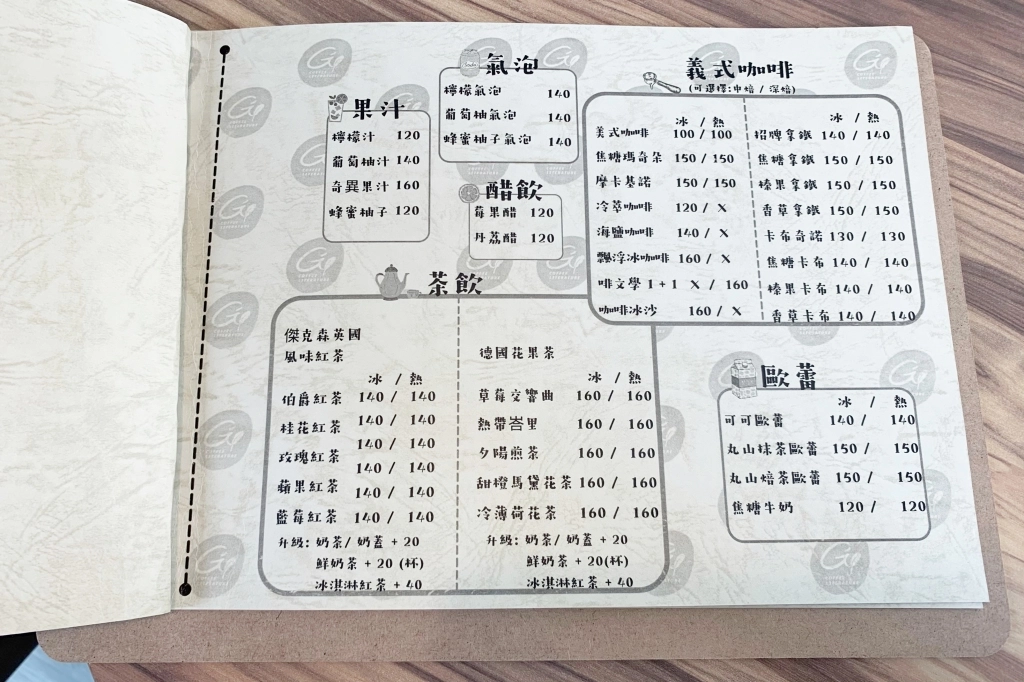 果汁
檸檬汁 120
葡萄柚汁 140
奇異果汁 160
蜂蜜柚子 120
氣泡
檸檬氣泡 140
葡萄柚氣泡 140
蜂蜜柚子氣泡 140
醋飲
莓果醋 120
丹荔醋 120
義式咖啡
(可選擇:中焙 / 深焙)
冰 / 熱
美式咖啡 100 / 100
焦糖瑪奇朵 150 / 150
摩卡基諾 150 / 150
冷萃咖啡 120 / X
海鹽咖啡 140 / X
飄浮冰咖啡 160 / X
啡文學 1 + 1 X / 160
咖啡冰沙 160 / X
冰 / 熱
招牌拿鐵 140 / 140
焦糖拿鐵 150 / 150
榛果拿鐵 150 / 150
香草拿鐵 150 / 150
卡布奇諾 130 / 130
焦糖卡布 140 / 140
榛果卡布 140 / 140
香草卡布 140 / 140
茶飲
傑克森英國
風味紅茶
冰 / 熱
伯爵紅茶 140 / 140
桂花紅茶 140 / 140
140 / 140
玫瑰紅茶 140 / 140
蘋果紅茶 140 / 140
藍莓紅茶 140 / 140
升級: 奶茶/ 奶蓋 + 20
鮮奶茶 + 20 (杯)
冰淇淋紅茶 + 40
德國花果茶
冰 / 熱
草莓交響曲 160 / 160
熱帶峇里 160 / 160
夕陽煎茶 160 / 160
甜橙馬黛花茶 160 / 160
冷薄荷花茶 160 / 160
升級: 奶茶/ 奶蓋 + 20
鮮奶茶 + 20(杯)
冰淇淋紅茶 + 40
歐蕾
冰 / 熱
可可歐蕾 140 / 140
丸山抹茶歐蕾 150 / 150
丸山焙茶歐蕾 150 / 150
焦糖牛奶 120 / 120